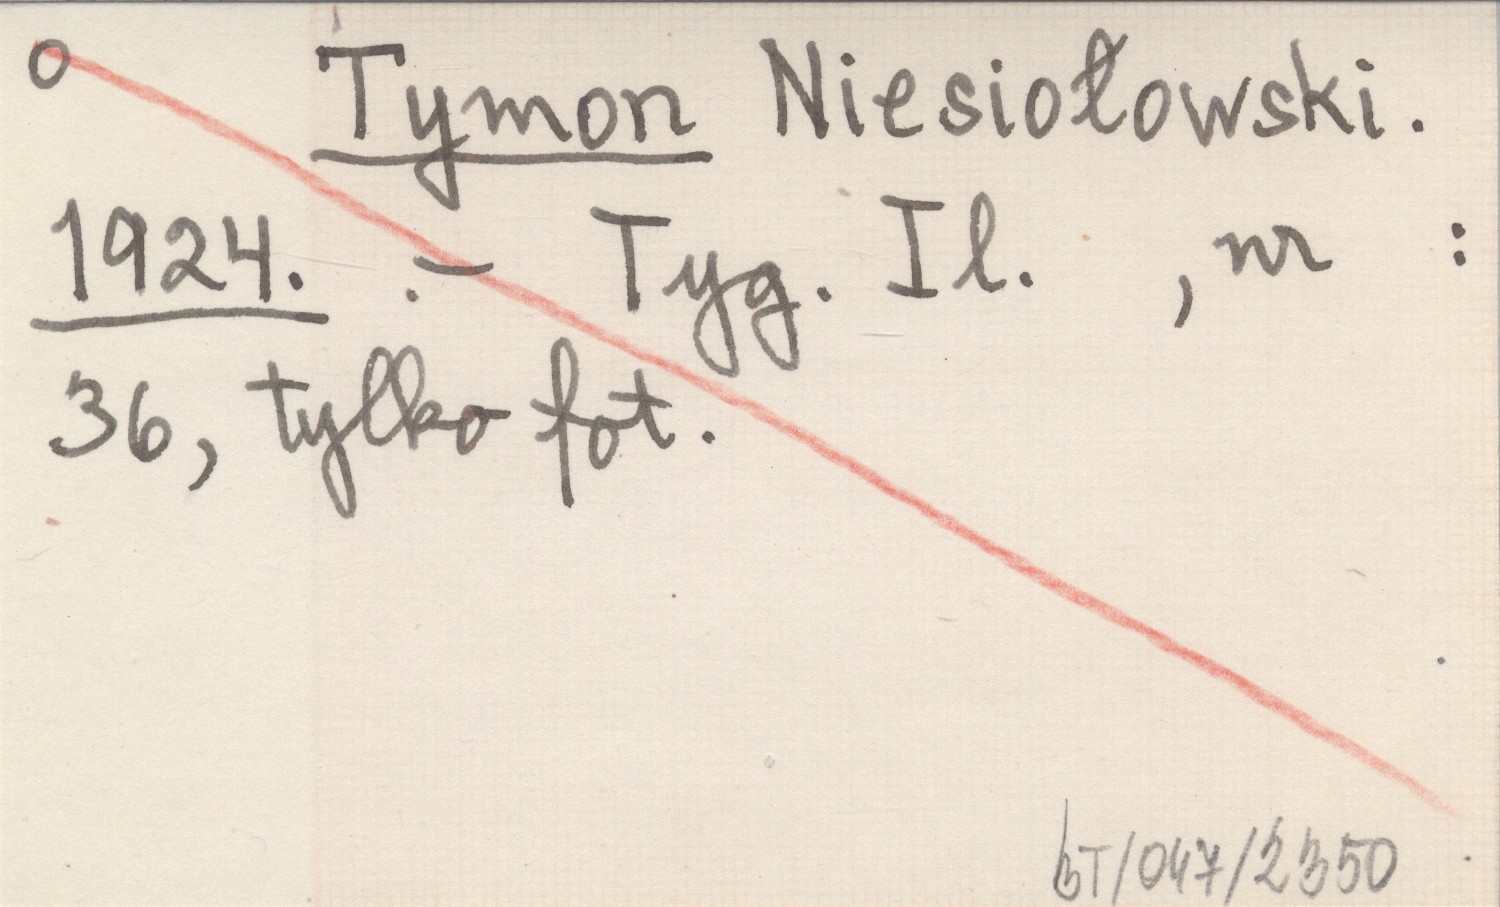 o Tymon Niesiołowski.
1924. .- Tyg. Il. , nr :
36, tylko fot.
bT/047/2350